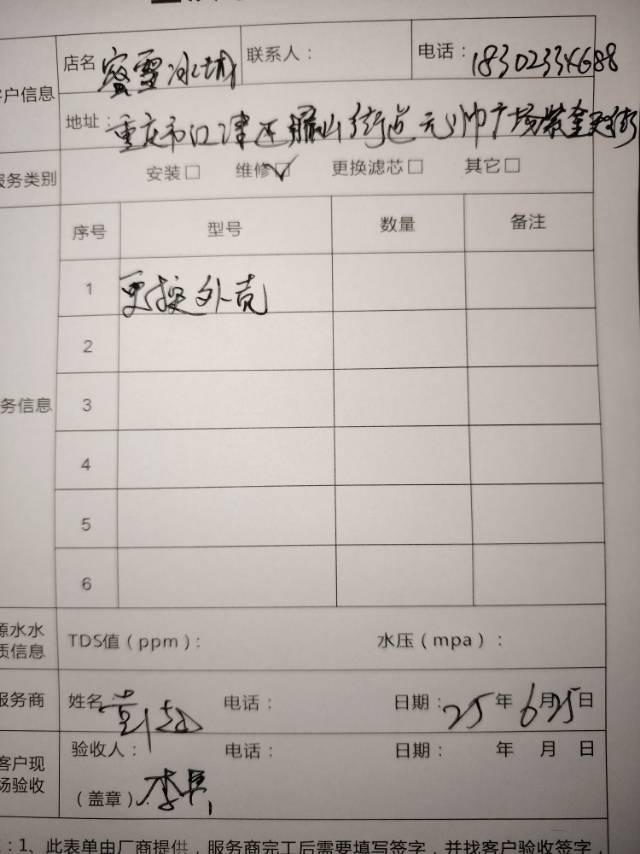 户信息
店名 蜜雪冰城 联系人： 电话：
地址： 重庆市江津区 街道元帅广场紫奎天街
服务类别 安装□ 维修☑ 更换滤芯□ 其它□
序号 型号 数量 备注
1 更换外壳
2
务信息 3
4
5
6
源水水
质信息 TDS值（ppm）： 水压（mpa）：
服务商 姓名： 电话： 日期：25年6月25日
客户现
场验收 验收人： 电话： 日期： 年 月 日
（盖章）
：1、此表单由厂商提供，服务商完工后需要填写签字，并找客户验收签字，